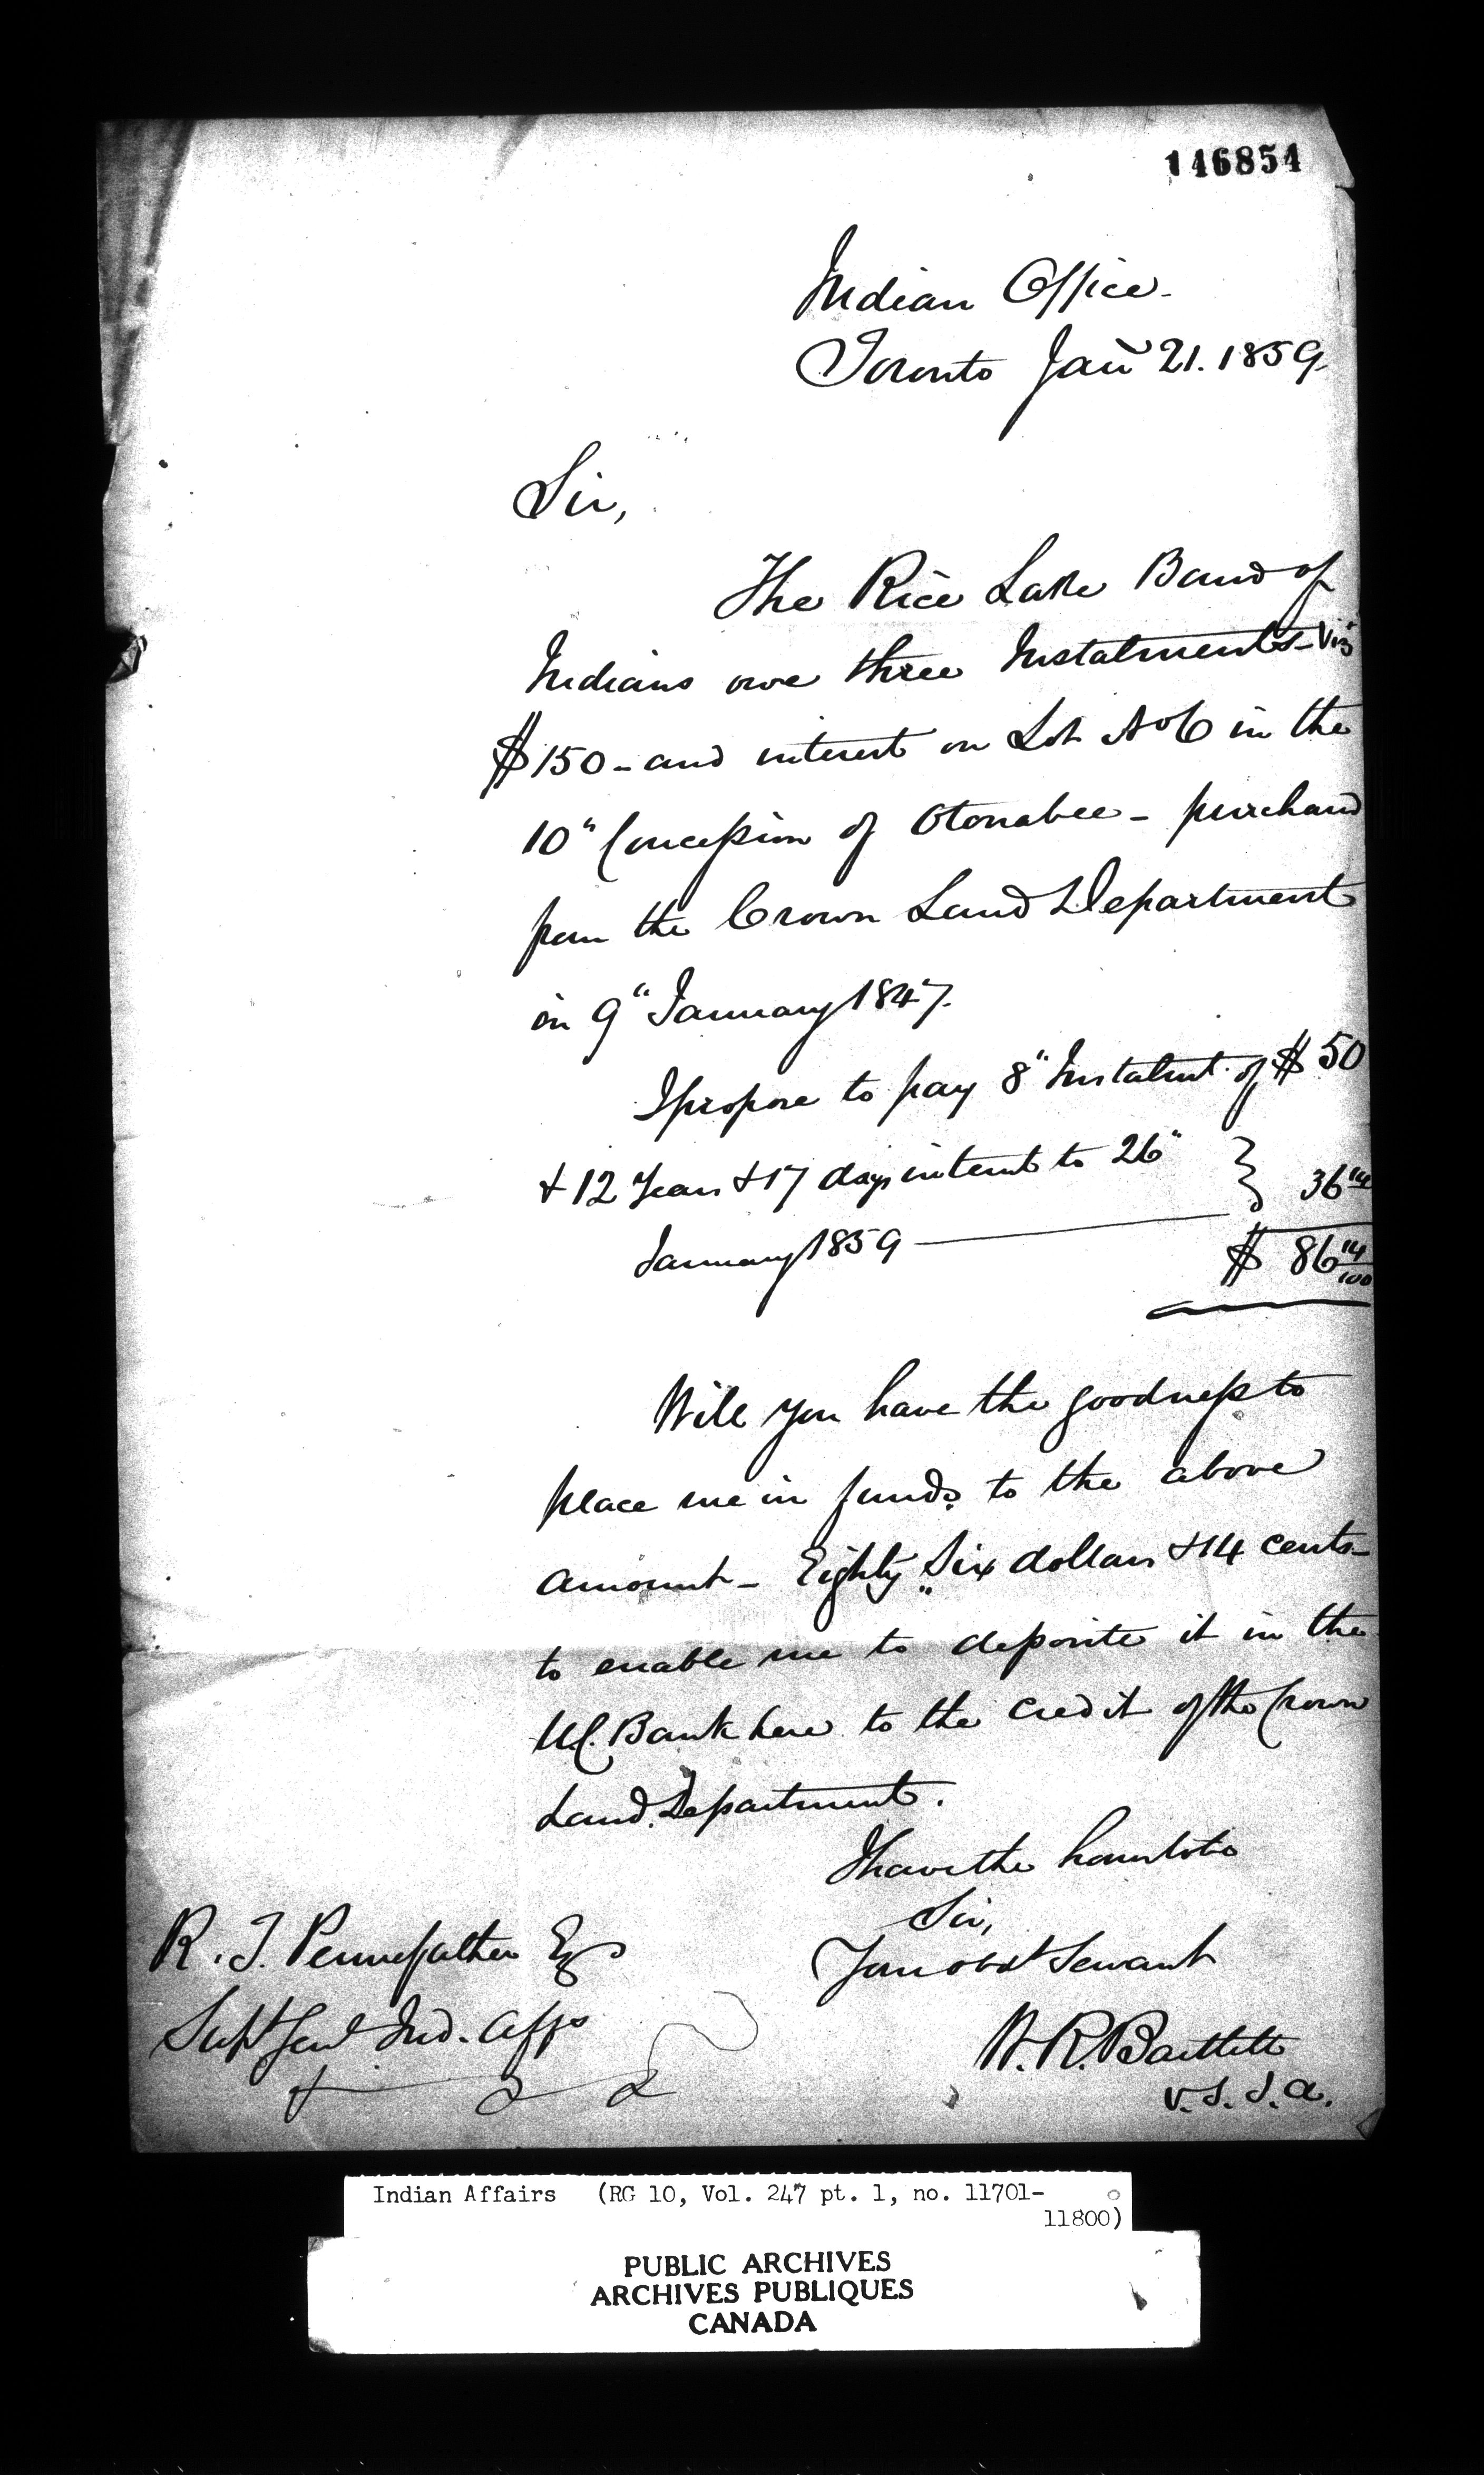 146854
Indian Office
Toronto Jany 21. 1859
Sir,
The Rice Lake Band of
Indians owe three Instalments - Viz
$150 - and interest on Lot No 6 in the
10" Concession of Otonabee - purchased
from the Crown Land Department
on 9" January 1847.
I propose to pay 8" Instalmt of $50
& 12 Years & 17 days interest to 26"
} 36 14
January 1859 —
$ 86 14/100
Will you have the goodness to
place me in funds to the above
amount - Eighty Six dollars & 14 cents -
to enable me to deposite it in the
U.C. Bank here to the credit of the Crown
Land Department.
I have the honor to be
Sir,
Your obdt Servant
W. R. Bartlett
V. S. I. A.
R. T. Pennefather Esq
Supt Genl Ind. Affs
Indian Affairs (RG 10, Vol. 247 pt. 1, no. 11701-
11800)
PUBLIC ARCHIVES
ARCHIVES PUBLIQUES
CANADA